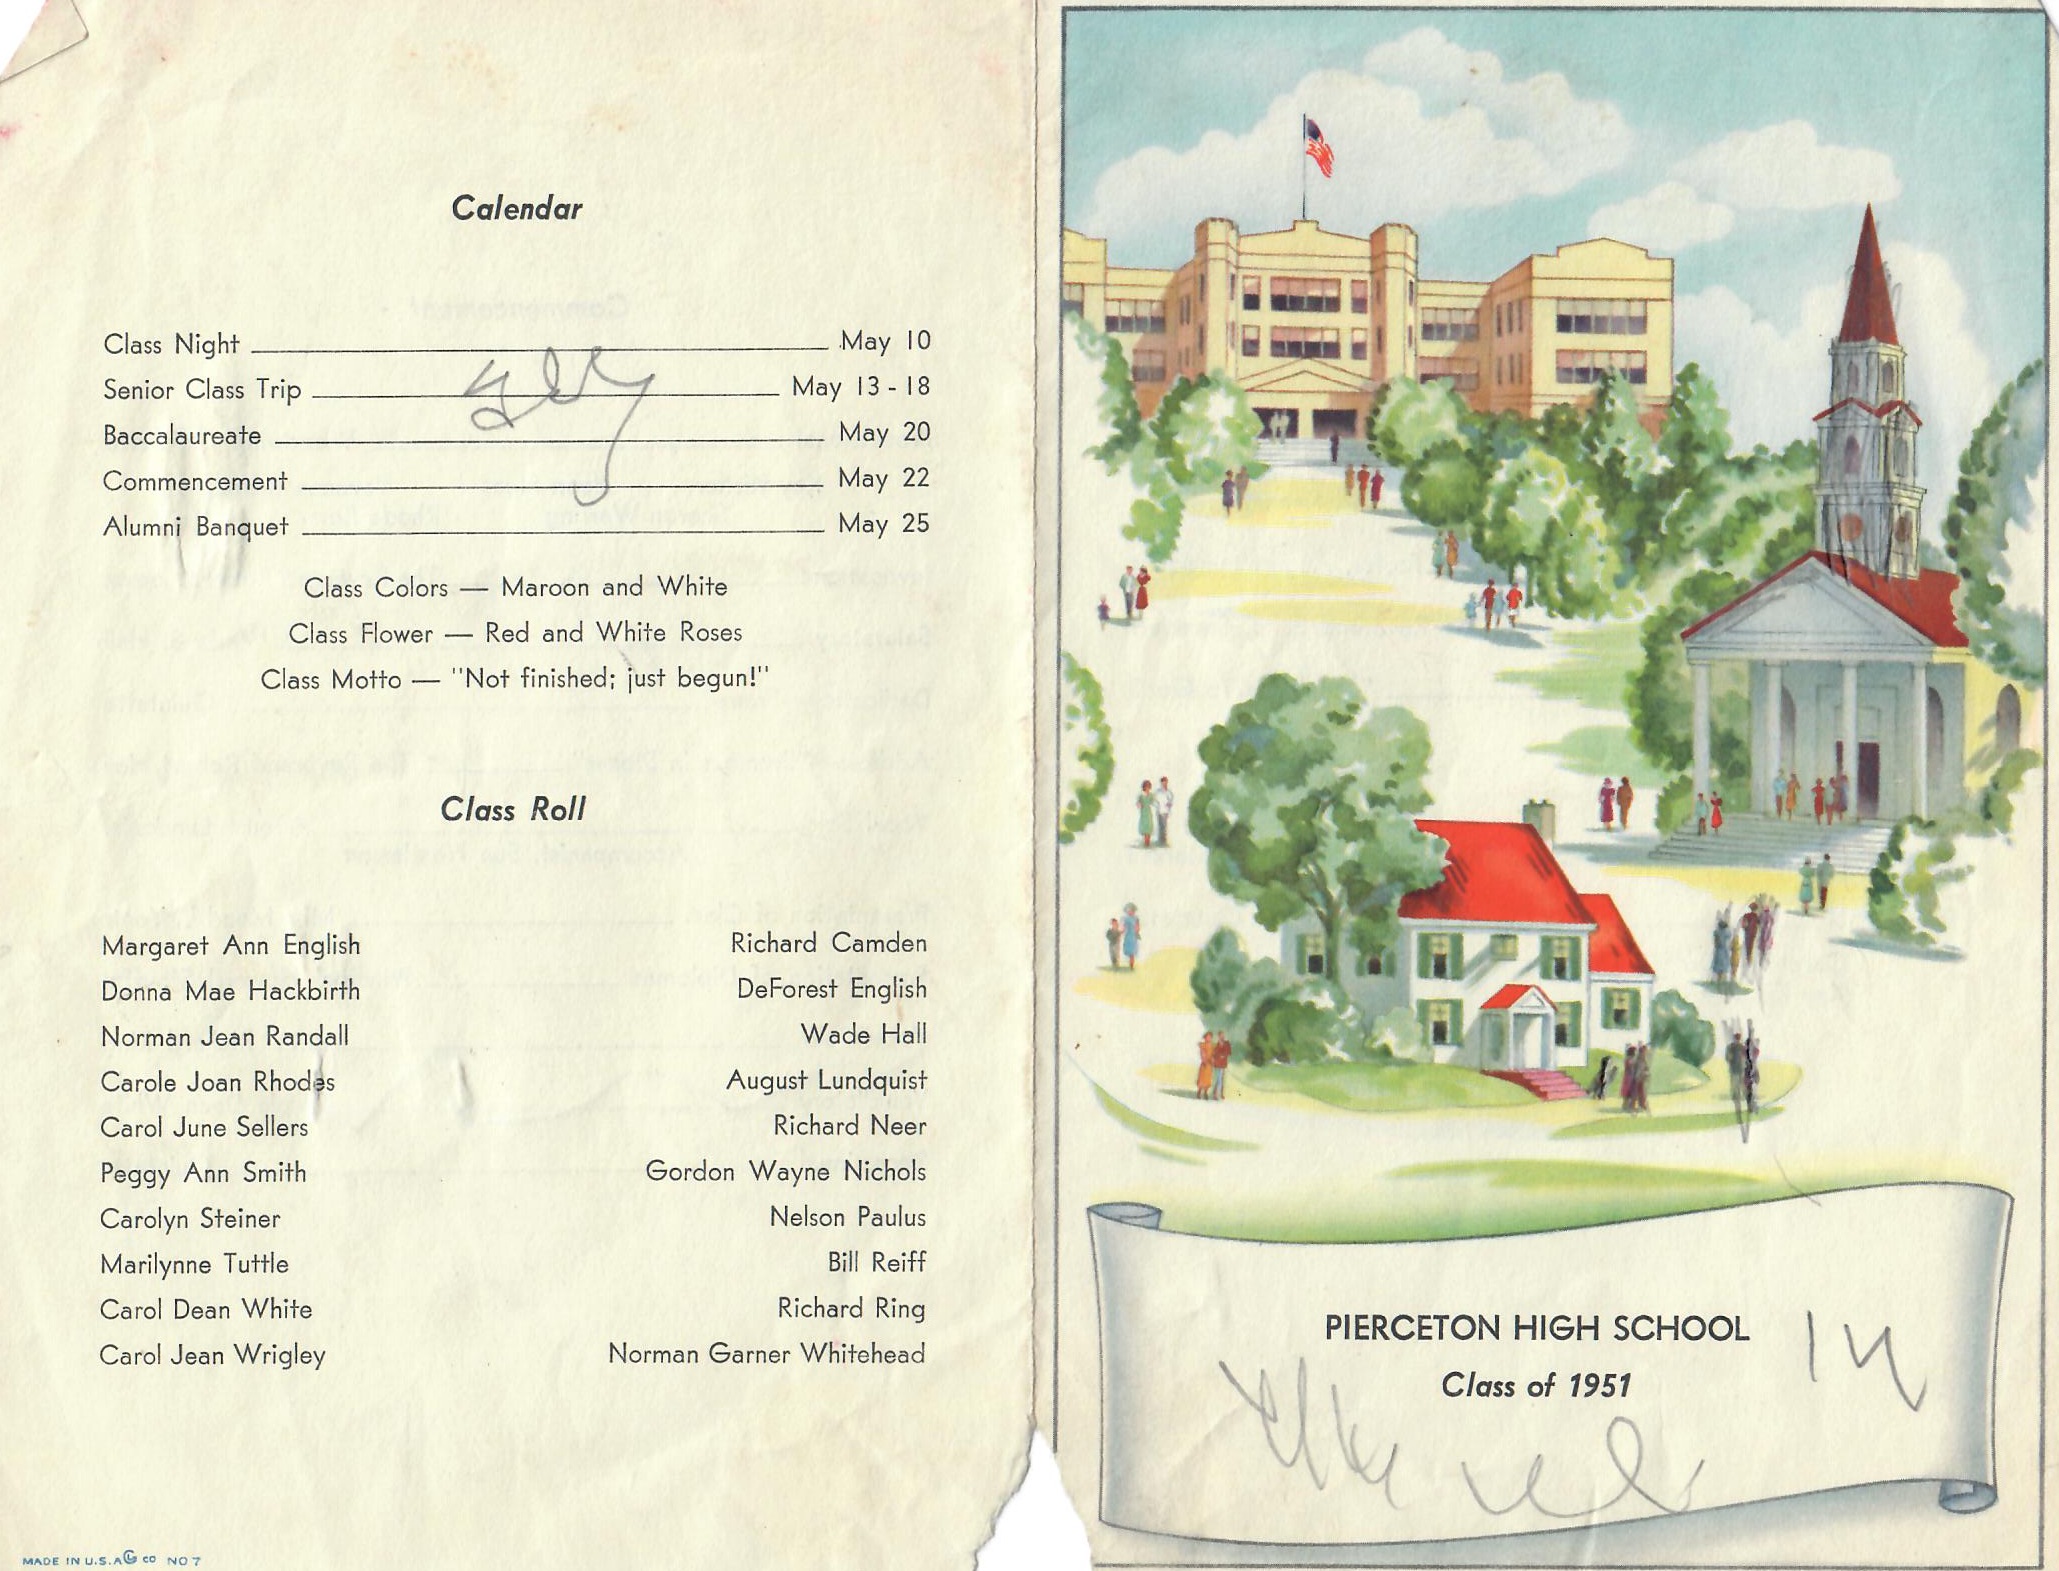 Calendar
Class Night May 10
Senior Class Trip May 13 - 18
Baccalaureate May 20
Commencement May 22
Alumni Banquet May 25
Class Colors — Maroon and White
Class Flower — Red and White Roses
Class Motto — "Not finished; just begun!"
Class Roll
Margaret Ann English Richard Camden
Donna Mae Hackbirth DeForest English
Norman Jean Randall Wade Hall
Carole Joan Rhodes August Lundquist
Carol June Sellers Richard Neer
Peggy Ann Smith Gordon Wayne Nichols
Carolyn Steiner Nelson Paulus
Marilynne Tuttle Bill Reiff
Carol Dean White Richard Ring
Carol Jean Wrigley Norman Garner Whitehead
MADE IN U.S.A. CO NO 7
PIERCETON HIGH SCHOOL
Class of 1951